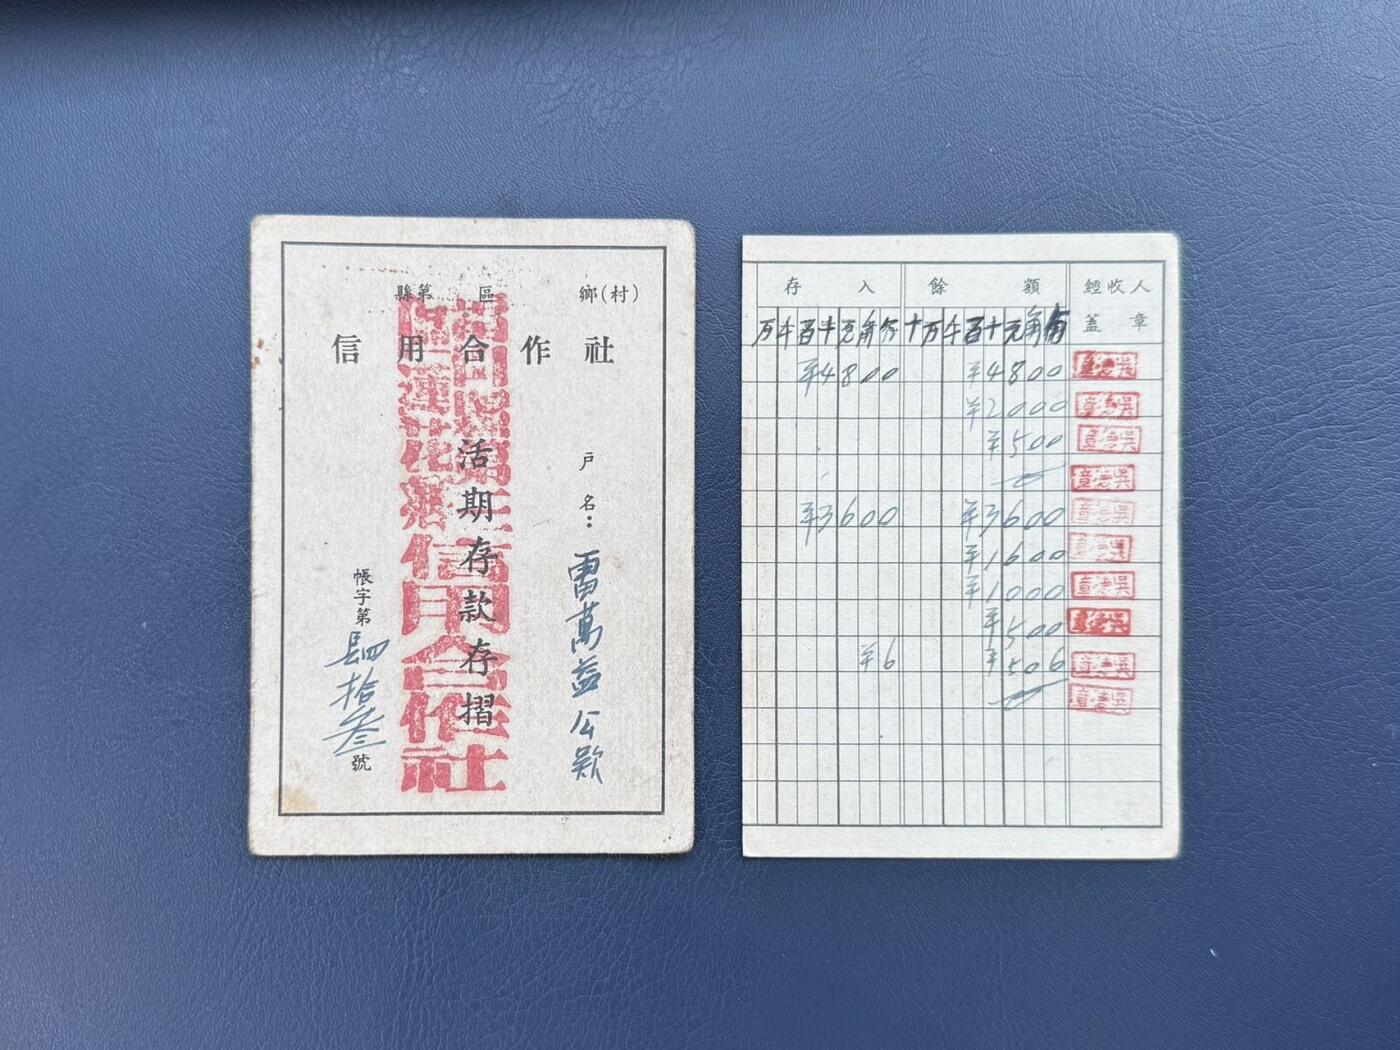 縣第 區 鄉(村)
信用合作社
戶名：雷萬益公款
活期存款存摺
蓮花 信用合作社
帳字第肆拾叁號
存入 餘額 經收人
蓋章
万千百十元角分 十万千百十元角分
¥4800 ¥4800
¥2000
¥500
¥3600 ¥3600
¥1600
¥1000
¥500
¥6 ¥506